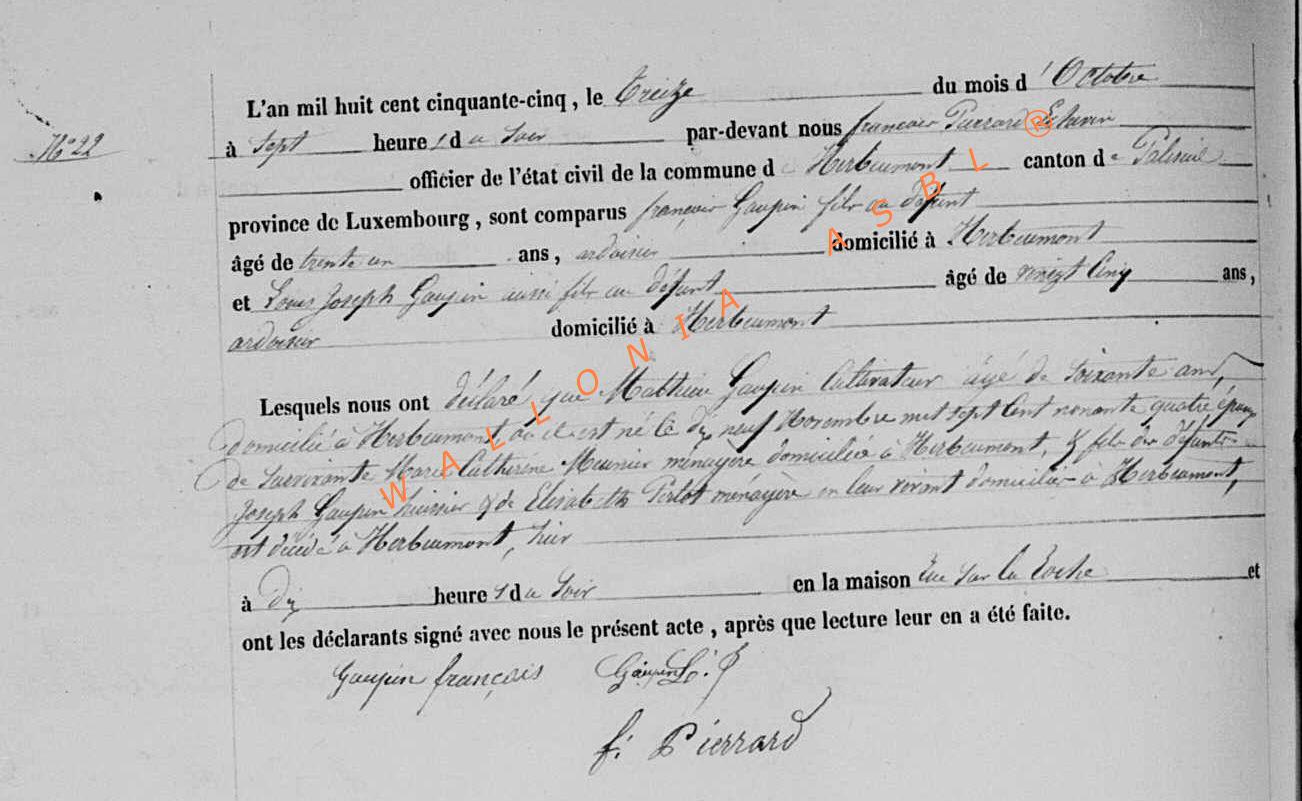 N° 22
L'an mil huit cent cinquante-cinq, le treize du mois d'Octobre
à sept heures du soir par-devant nous françois Pierrard Echevin
officier de l'état civil de la commune de Herbeumont canton de Paliseul
province de Luxembourg, sont comparus françois Gaupin fils au défunt
âgé de trente un ans, ardoisier domicilié à Herbeumont
et Louis Joseph Gaupin aussi fils au défunt âgé de vingt Cinq ans,
ardoisier domicilié à Herbeumont
Lesquels nous ont déclaré que Mathieu Gaupin Cultivateur âgé de soixante ans,
domicilié à Herbeumont où il est né le dix neuf Novembre mil sept Cent nonante quatre époux
de survivante Marie Catherine Meunier ménagère domiciliée à Herbeumont, & fils des défunts
Joseph Gaupin huissier & de Elisabeth Perlot ménagère en leur vivant domiciliés à Herbeumont,
est décédé à Herbeumont, hier
à dix heures du soir en la maison Rue sur la Roche et
ont les déclarants signé avec nous le présent acte, après que lecture leur en a été faite.
Gaupin françois Gaupin L. J
f. Pierrard
WALLONIA ASBL ®